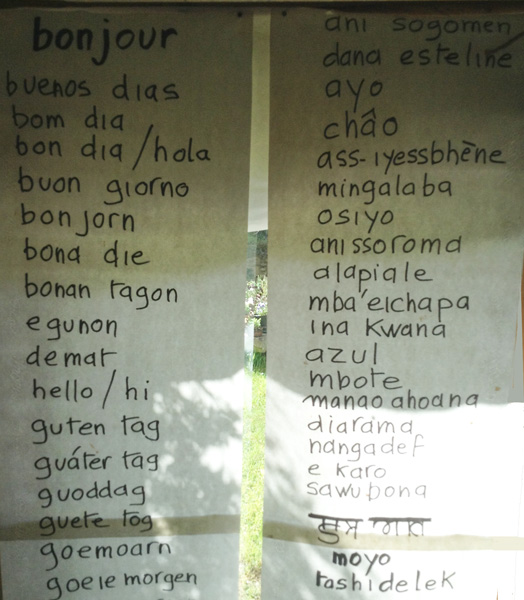 bonjour
buenos dias
bom dia
bon dia/hola
buon giorno
bonjorn
bona die
bonan tagon
egunon
demat
hello/hi
guten tag
guáter tag
guoddag
guete tog
goemoarn
goeie morgen
ani sogomen
dana esteline
ayo
châo
ass-iyessbhène
mingalaba
osiyo
anissoroma
alapiale
mba'eichapa
ina kwana
azul
mbote
manao ahoana
diarama
nangadef
e karo
sawubona
moyo
tashidelek